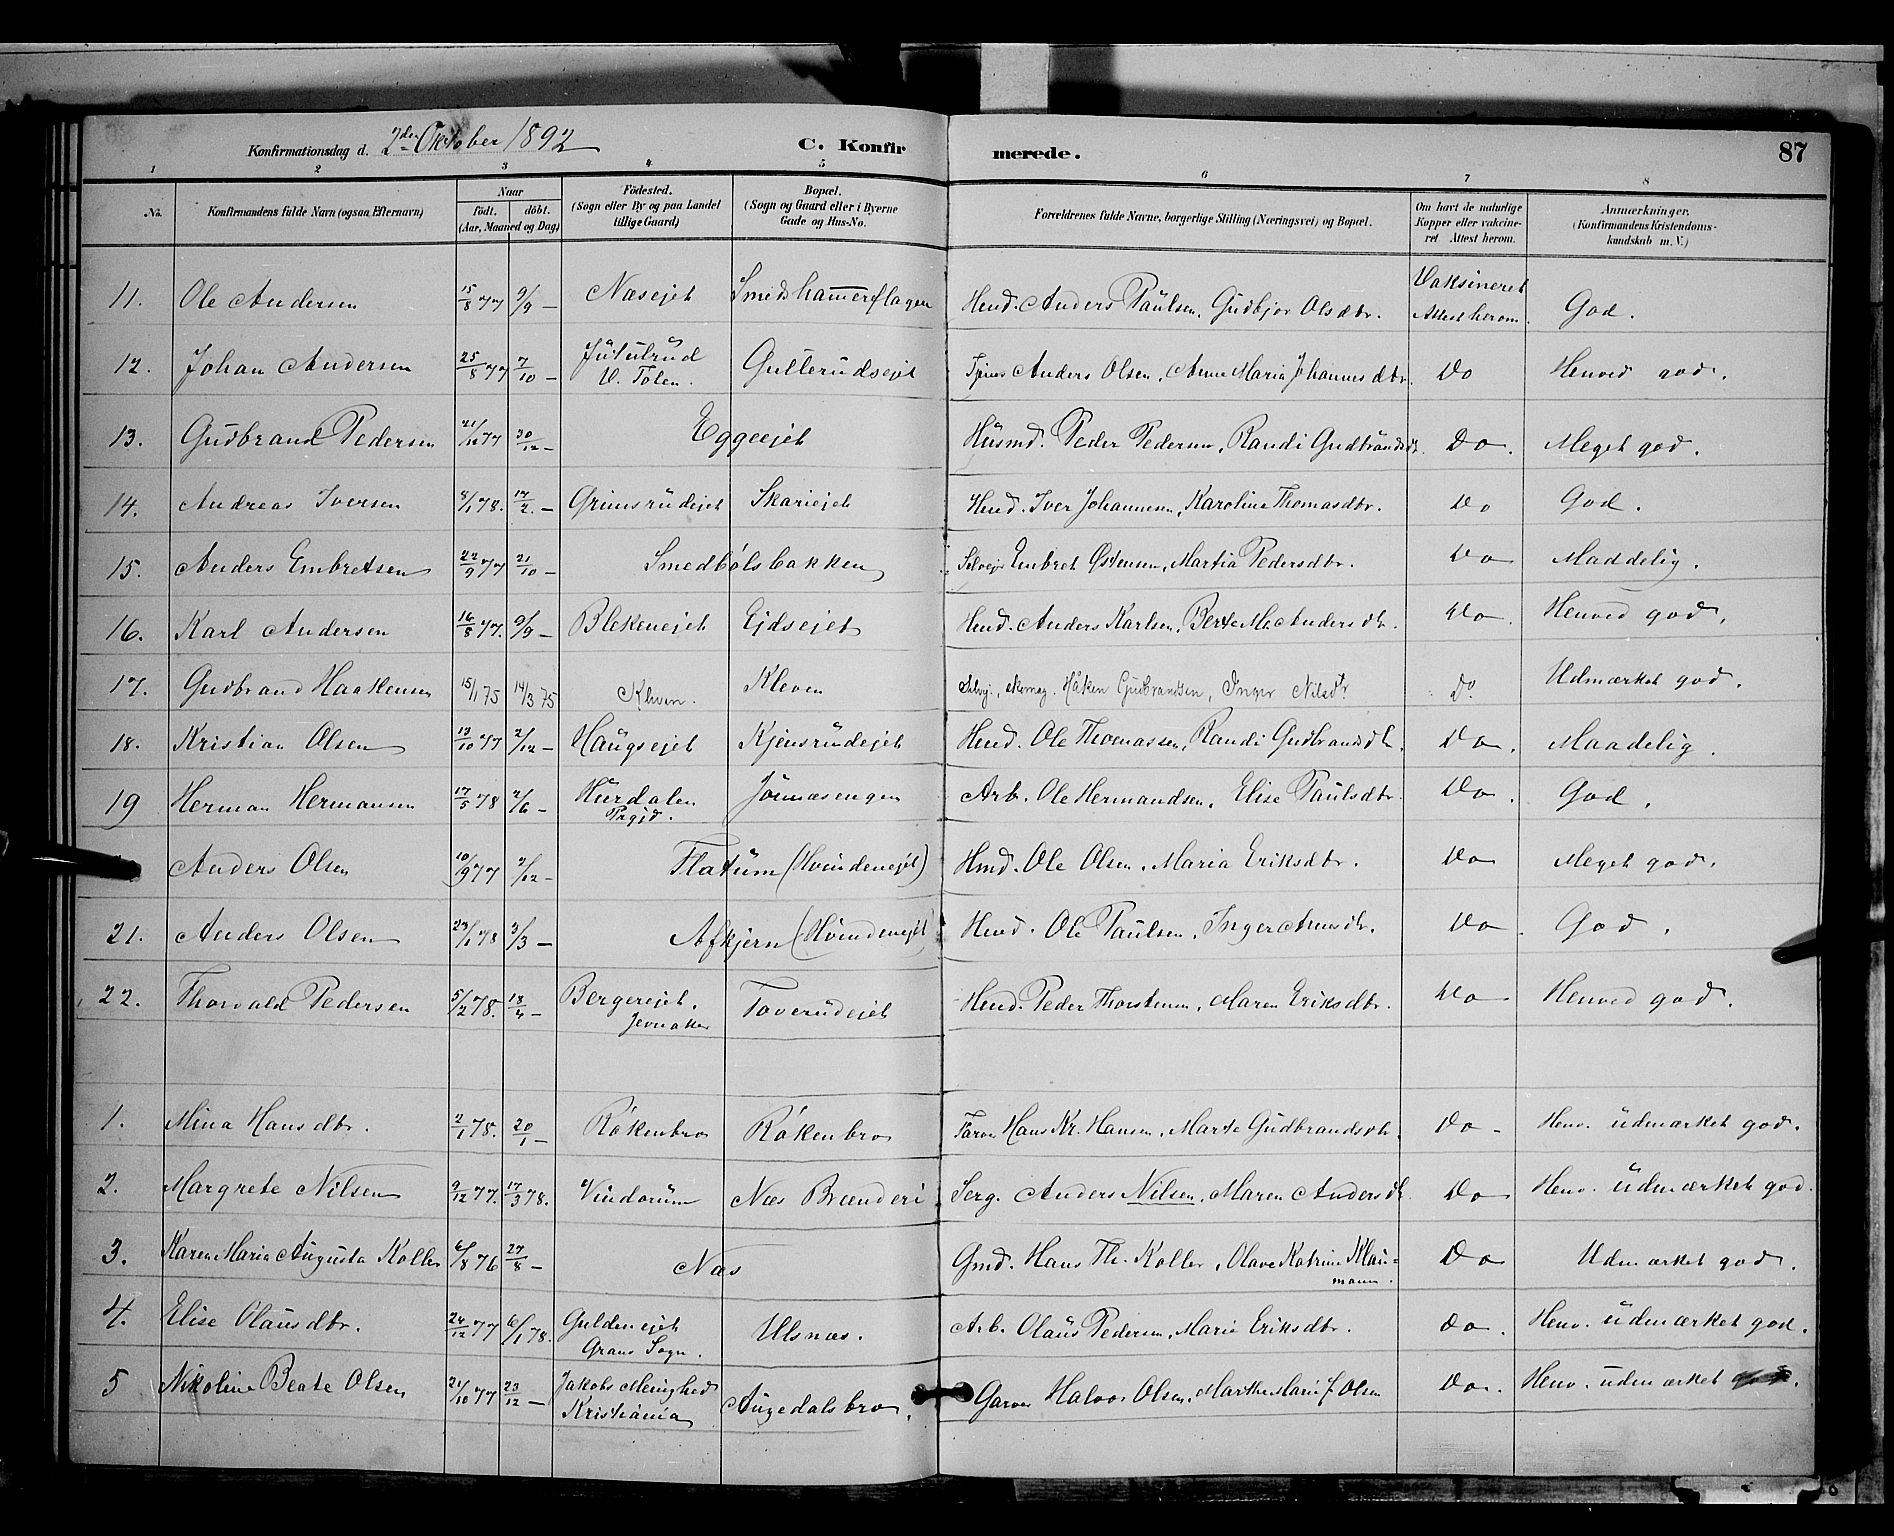 Konfirmationsdag d. 2den Oktober 1892 C. Konfirmerede. 87
1 2 3 4 5 6 7 8
No. Konfirmandens fulde Navn (ogsaa Efternavn) Naar födt. döbt. (Aar, Maaned og Dag) Födested. (Sogn eller By og paa Landet tillige Gaard) Bopæl. (Sogn og Gaard eller i Byerne Gade og Hus-No. Forældrenes fulde Navne, borgerlige Stilling (Næringsvei) og Bopæl. Om havt de naturlige Kopper eller vakcineret. Attest herom. Anmærkninger. (Konfirmandens Kristendomskundskab m. V.)
11. Ole Andersen 15/8 77 9/9 — Næsejet Smedshammerflagen Hmd. Anders Paulsen, Gudbjør Olsdtr. Vaksineret Attest herom. God.
12. Johan Andersen 25/8 77 7/10 — Jutulrud V. Toten. Gullerudsejet Tjener Anders Olsen, Anne Maria Johannesdtr. Do Henved god.
13. Gudbrand Pedersen 21/10 77 30/12 — Eggeejet Husmd. Peder Pedersen, Randi Gudbrandsdt. Do. Meget god.
14. Andreas Iversen 8/1 78. 17/2. — Grimsrudejet Skariejet Hmd. Iver Johannesen, Karoline Thomasdtr. Do God.
15. Anders Embretsen 22/9 77 21/10 — Smedbölsbakken Selvejer Embret Østensen, Martia Pedersdtr. Do Maddelig.
16. Karl Andersen 16/8 77. 9/9 — Blekenejet Ejdsejet Hmd. Anders Karlsen, Berte M. Andersdtr. Do. Henved god.
17. Gudbrand Haakensen 15/1 75 14/3 75 Kleven. Kleven Selvej., skomag. Håken Gudbrandsen, Inger Nilsdtr Do. Udmærket god.
18. Kristian Olsen 13/10 77 2/12 — Haugsejet Kjensrudejet Hmd. Ole Thomassen, Randi Gudbrandsdtr. Do. Maadelig.
19 Herman Hermansen 17/5 78 2/6 — Hurdalen Prgjd. Jonnæsengen Arb. Ole Hermandsen, Elise Paulsdtr. Do. God.
Anders Olsen 10/9 77 2/12 — Flatum (Hvindenejet) Hmd. Ole Olsen, Maria Eriksdtr. Do Meget god.
21. Anders Olsen 23/1 78 3/3 — Afkjern (Hvindenejet) Hmd. Ole Paulsen, Inger Arnesdtr. Do. God.
22. Thorvald Pedersen 5/2 78. 18/4 — Bergerejet. Jevnaker Toverudejet Hmd. Peder Thorstensen, Maren Eriksdtr. Do Henved god.
1. Mina Hansdtr. 2/1 78. 20/1 — Rökenbro Rökenbro Farver Hans Kr. Hansen, Marte Gudbrandsdtr. Do — Henv. udmærket god.
2. Margrete Nilsen 2/12 77. 17/3 78. Vindorum Næs Brænderi Serg. Anders Nilsen, Maren Andersdtr. Do Henv. udmærket god.
3. Karen Maria Augusta Koller 6/8 76 27/8 — Næs Gmd. Hans Th. Koller, Olave Katrine Klaumann. Do Udmærket god.
4. Elise Olausdtr. 24/12 77 6/1 78. Guldenejet Grans Sogn. Ulsnæs. Arb. Olaus Pedersen, Marie Eriksdtr. Do. Henv. udmærket god.
5 Nikoline Beate Olsen 21/10 77 23/12 — Jakobs Menighed Kristiania Augedalsbro. Garver Halvor Olsen, Marthe Marie J. Olsen Do. Henv. udmærket god.